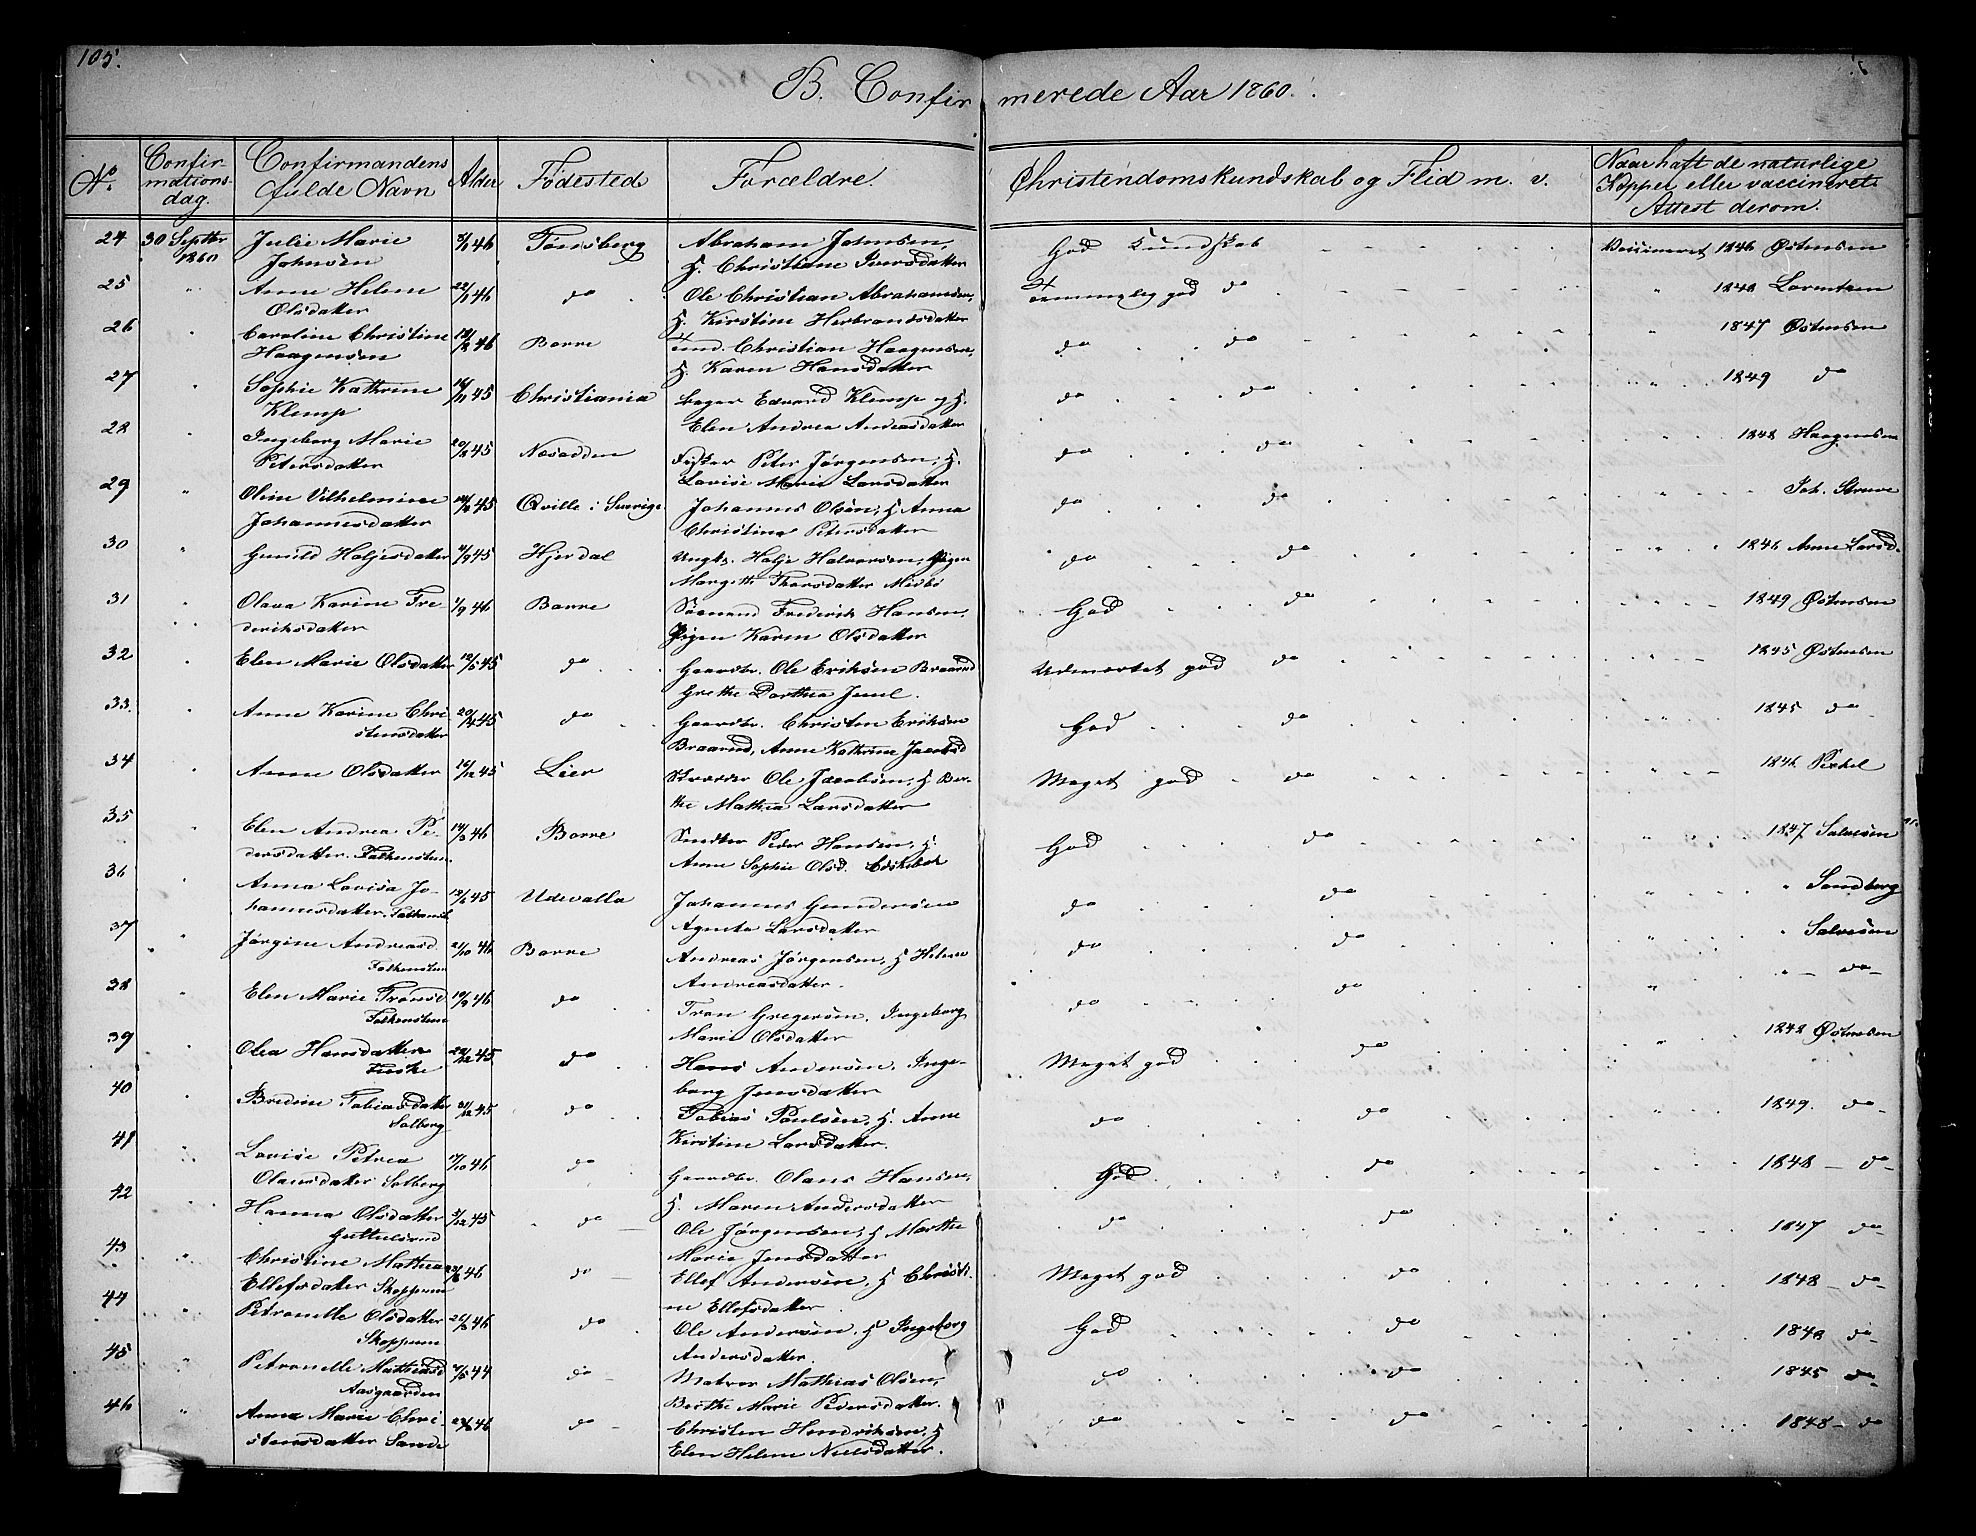 105.
B. Confirmerede Aar 1860.
No. Confirmations-dag. Confirmandens fulde Navn Alder Fødested Forældre. Christendomskundskab og Flid m. v. Naar haft de naturlige Kopper eller vaccineret Attest derom.
24 30 Septbr 1860 Julie Marie Johnsen 46 Tønsberg Abraham Johnsen, H. Christiane Iversdatter God Kundskab Vaccineret 1846 Østensen
25 Anne Helene Olsdatter 46 do Ole Christian Abrahamsen, H. Kirstine Herbrandsdatter Temmelig god do Lorentzen
26 Caroline Christine Haagensen 46 Borre Tund. Christian Haagensen, H. Karen Hansdatter do do 1847 Østensen
27 Sophie Kathrine Klemp 45 Christiania Bager Edvard Klemp og H. Elen Andrea Andreasdatter do do 1849 do
28 Ingeborg Marie Petersdatter 45 Næsodden Fisker Peter Jørgensen, H. Lovise Marie Larsdatter do do 1848 Haagensen
29 Oline Vilhelmine Johannesdatter 45 Qville i Sverige Johannes Olsen, H Anna Christina Petersdatter do do Joh. Struve
30 Gunild Haljesdatter 45 Hjerdal Ungk. Halje Halvorsen, Pigen Margeth Thorsdatter Midbö do do 1846 Anne Larsd.
31 Olava Karine Frederiksdatter 1/9 46 Borre Sømand Frederik Hansen, Pigen Karen Olsdatter God do 1849 Østensen
32 Elen Marie Olsdatter 45 do Gaardbr. Ole Eriksen Braarud Grethe Dorthea Juul. Udmærket god do 1845 Østensen
33. Anne Karine Christensdatter 45 do Gaardbr. Christen Eriksen Braarud, Anne Kathrine Jacobsd God do 1845 do
34 Anne Olsdatter 16/12 45 Lier Skræder Ole Jacobsen, H Berthe Mathea Larsdatter Meget god do 1846
35 Elen Andrea Pedersdatter. Falkensten 46 Borre Peder Hansen, H. Anne Sophie Olsd. God do 1847 Salvesen
36 Anna Lovisa Johannesdatter. Falkenst. 45 Udevalla Johannes Gundersen Agneta Larsdatter do do Sandberg
37 Jørgine Andreasd. Falkensten 46 Borre Andreas Jørgensen, H Helene Andreasdatter. do do Salvesen
38 Elen Marie Trønsd Falkensten 46 do Tron Gregersen, Ingeborg Marie Olsdatter do do do
39 Olea Hansdatter 45 do Hans Andersen, Ingeborg Jensdatter Meget god do 1848 Østensen
40 Bredine Tobiasdatter Solberg 31/12 45 do Tobias Paulsen, H. Anne Kirstine Larsdatter. do do 1849. do
41 Lovise Petrea Olausdatter Solberg 17/10 46 do Gaardbr. Olaus Hansen, H. Maren Andersdatter God. do 1848 do
42 Hanna Olsdatter 45 do Ole Jørgensen, H Marthe Marie Jensdatter do do 1847 do
43 Christine Mathea Ellefsdatter Skoppum 46 do Ellef Andersen, H Christine Ellefsdatter Meget god do 1848 do
44 Petronelle Olsdatter Skoppum 46 do Ole Andersen, H Ingeborg Andersdatter. God do do
45 Petronelle Mathiasd Aasgaarden 44 do Matros Mathias Olsen, Berthe Marie Pedersdatter. do do 1845 do
46 Anna Marie Christensdatter Sande 46 do Christen Hendriksen, H Elen Helene Nielsdatter. do do 1848 do